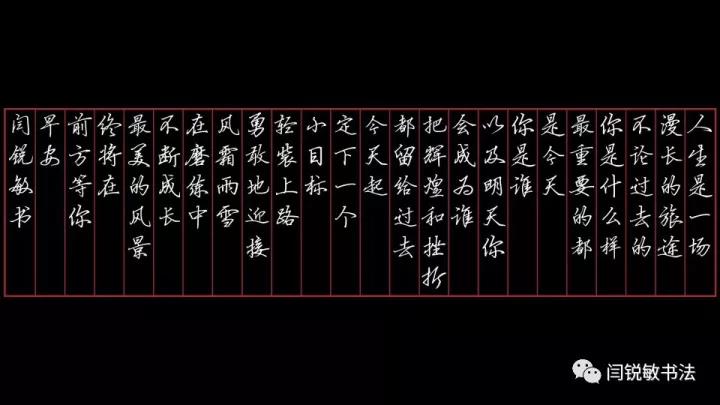 人生是一场
漫长的旅途
不论过去的
你是什么样
最重要的都
是今天
你是谁
以及明天你
会成为谁
把辉煌和挫折
都留给过去
今天起
定下一个
小目标
轻装上路
勇敢地迎接
风霜雨雪
在磨练中
不断成长
最美的风景
终将在
前方等你
早安
闫锐敏书
闫锐敏书法